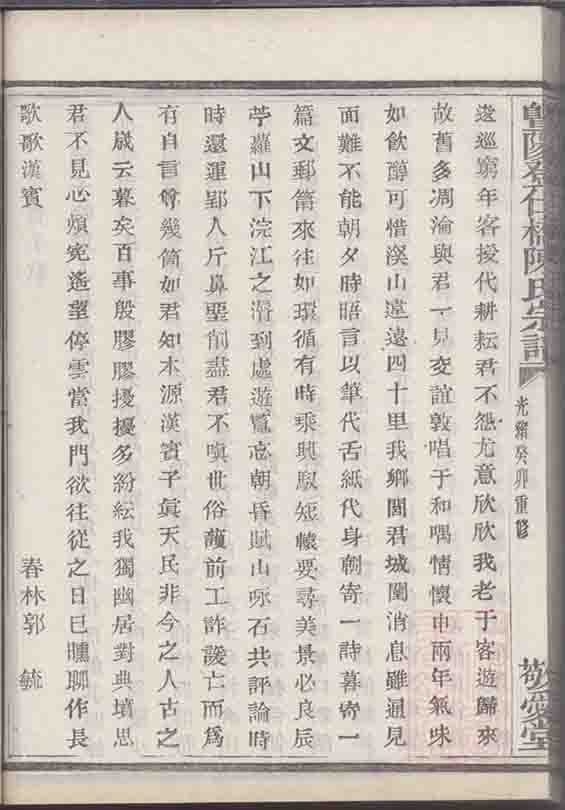 暨陽登仕橋陳氏宗譜
光緒癸卯重修
敬愛堂
逡巡窮年客授代耕耘君不怨尤意欣欣我老于客遊歸來
故舊多凋淪與君一見交誼敦唱于和喁情懷申兩年氣味
如飲醇可惜溪山遠遠四十里我鄉閭君城闉消息雖通見
面難不能朝夕時晤言以筆代舌紙代身朝寄一詩暮寄一
篇文郵筩來往如環循有時乘興駕短轅要尋美景必良辰
苧蘿山下浣江之漘到處遊覽忘朝昏賦山琢石共評論時
時還運郢人斤鼻堊削盡君不嗔世俗顏前工詐諼亡而為
有自言尊幾箇如君知木源漢賓子眞天民非今之人古之
人歲云暮矣百事殷膠膠擾擾多紛紜我獨幽居對典墳思
君不見心煩寃遙望停雲當我門欲往從之日已曛聊作長
歌歌漢賓
春林郭毓